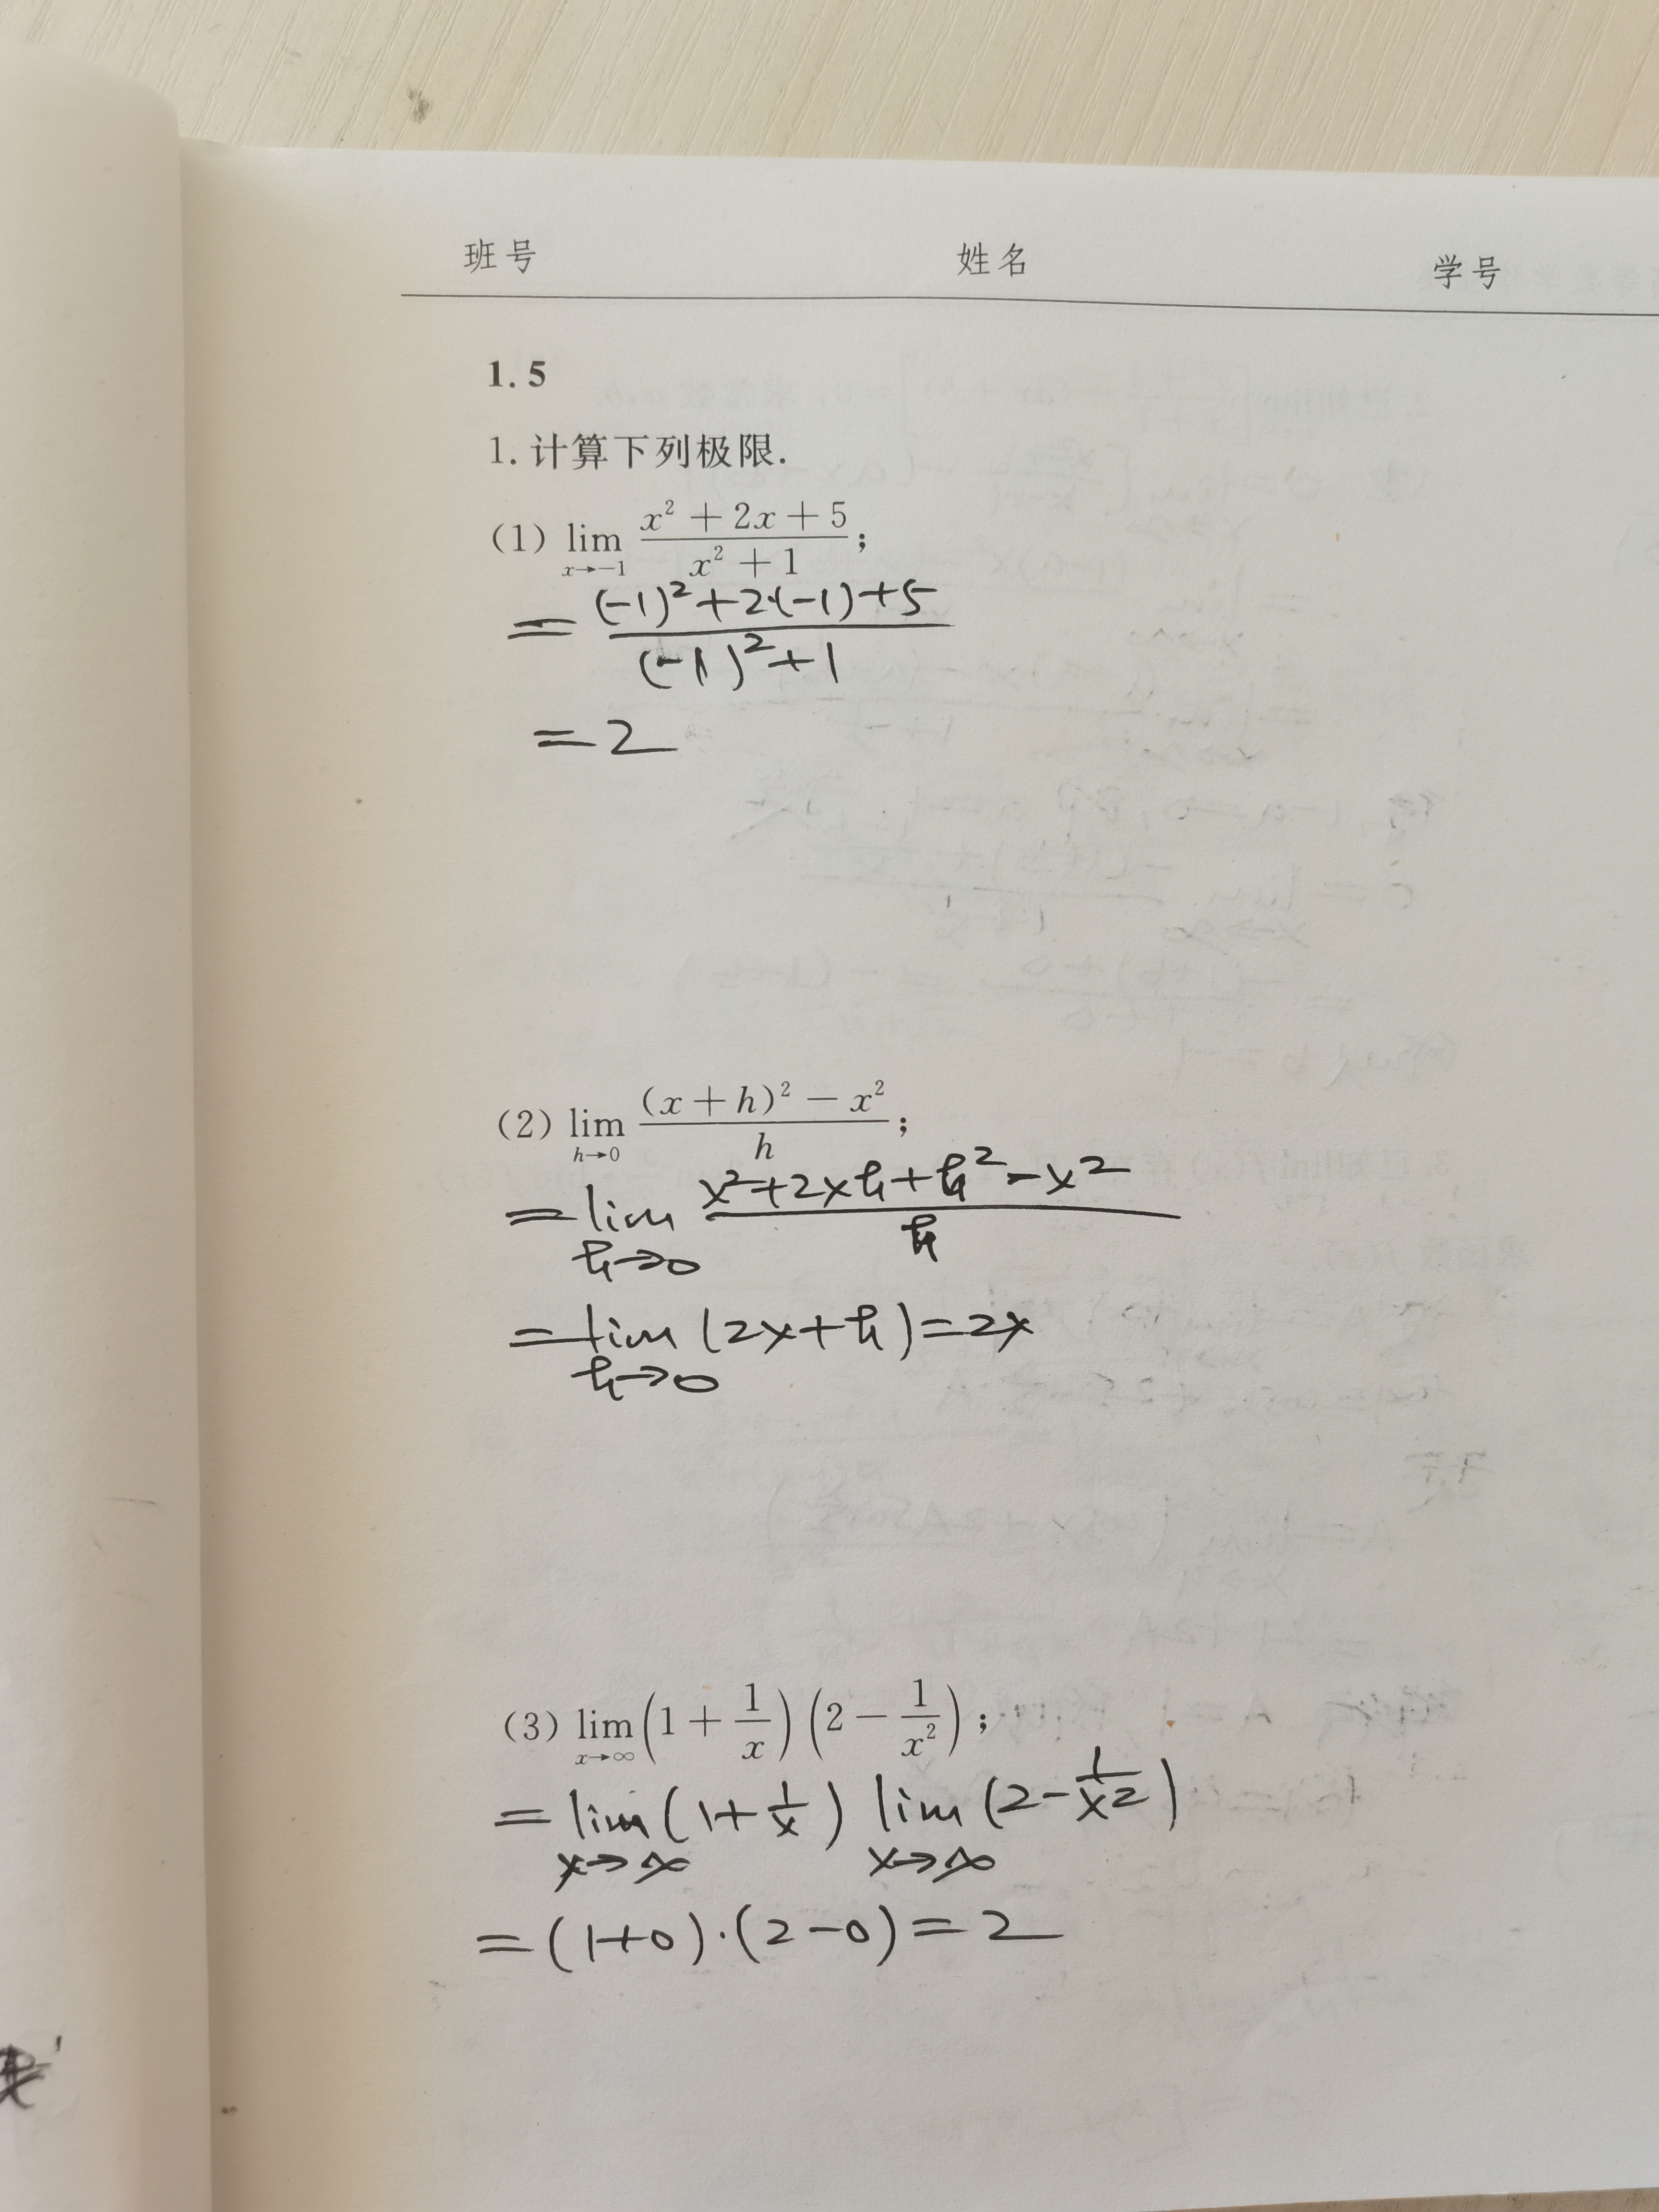 班号 姓名 学号
1.5
1. 计算下列极限.
(1) lim_{x→-1} (x² + 2x + 5)/(x² + 1);
= ((-1)²+2·(-1)+5)/((-1)²+1)
= 2
(2) lim_{h→0} ((x + h)² - x²)/h;
= lim_{h→0} (x²+2xh+h²-x²)/h
= lim_{h→0} (2x+h) = 2x
(3) lim_{x→∞} (1 + 1/x)(2 - 1/x²);
= lim_{x→∞} (1+1/x) lim_{x→∞} (2-1/x²)
= (1+0)·(2-0) = 2